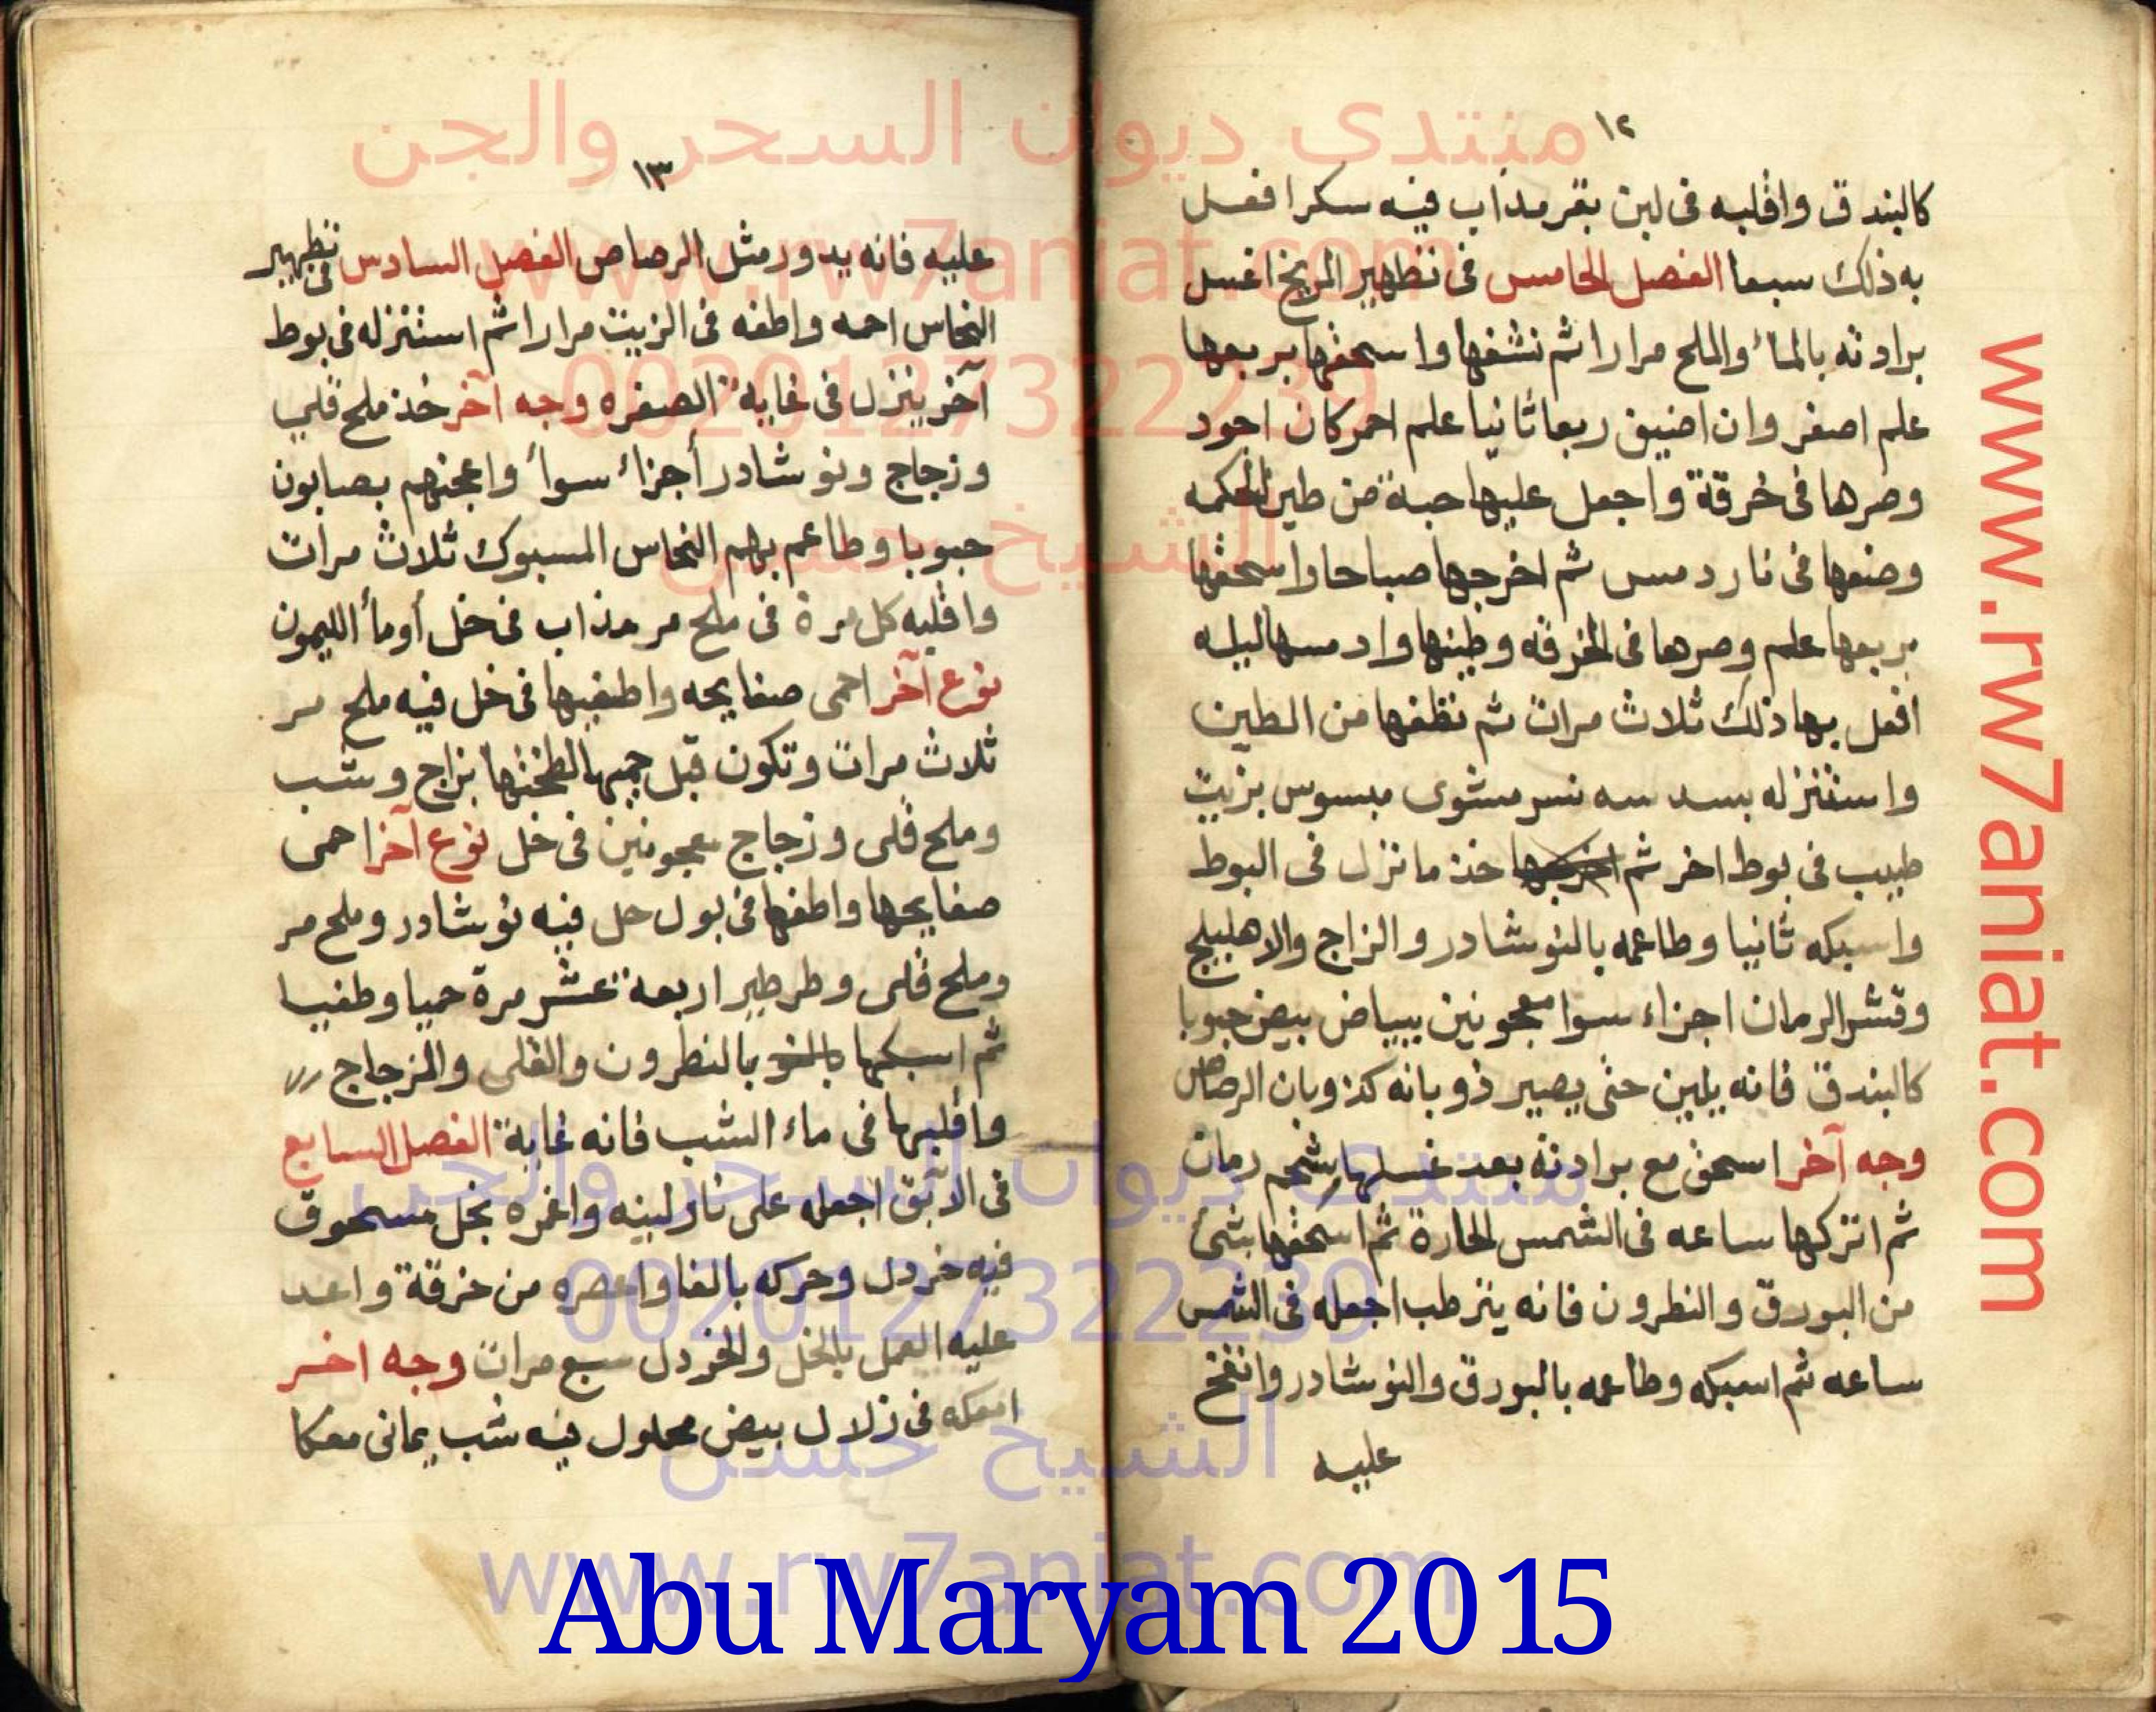 ١٢
كالبندق واقلبه فى لبن بقر مذاب فيه سكرا فعل
به ذلك سبعا الفصل الخامس فى تطهير المريخ اغسل
برادته بالماء والملح مرارا ثم نشفها واسحقها بربعها
علم اصفر وان اضيف ربعا ثانيا علم احمر كان اجود
وصرها فى خرقة واجعل عليها حبة من طين الحكمه
وضعها فى نار دمس ثم اخرجها صباحا واسحقها
بربعها علم وصرها فى الخرقه وطينها وادمسها ليله
افعل بها ذلك ثلاث مرات ثم نظفها من الطين
واستنزله بسدسه مشوى مبسوس بزيت
طيب فى بوط اخر ثم خذ ما نزل فى البوط
واسبكه ثانيا وطاعمه بالنوشادر والزاج والاهليلج
وقشر الرمان اجزاء سوا معجونين ببياض بيض حبوبا
كالبندق فانه يلين حتى يصير ذوبانه كذوبان الرصاص
وجه آخر اسحق مع برادته بعد غسلها شحم رمان
ثم اتركها ساعه فى الشمس الحارة ثم اسحقها بشئ
من البورق والنطرون فانه يترطب اجعله فى الشمس
ساعه ثم اسبكه وطاعمه بالبورق والنوشادر وانفخ
عليه
١٣
عليه فانه يدور مثل الرصاص الفصل السادس فى تطهير
النحاس احمه واطفه فى الزيت مرارا ثم استنزله فى بوط
آخر ينزل فى غاية الصفره وجه آخر خذ ملح قلى
وزجاج ونوشادر أجزاء سواء واعجنهم بصابون
حبوبا وطاعم بهم النحاس المسبوك ثلاث مرات
واقلبه كل مرة فى ملح مر مذاب فى خل أو مأ الليمون
نوع آخر احمى صفايحه واطفيها فى خل فيه ملح مر
ثلاث مرات وتكون قبل حميها لطختها بزاج وشب
وملح قلى وزجاج معجونين فى خل نوع آخر احمى
صفايحها واطفها فى بول حل فيه نوشادر وملح مر
وملح قلى وطرطير اربعة عشر مرة حميا وطفيا
ثم اسبكها بالنو بالنطرون والقلى والزجاج
واقلبها فى ماء الشب فانه غاية الفصل السابع
فى الآبق اجعله على نار لينه واغمره بخل مسحوق
فيه خردل وحركه بالغا واعصره من خرقة واعد
عليه العمل بالخل والخردل سبع مرات وجه اخر
امعكه فى زلال بيض محلول فيه شب يمانى معكا
منتدى ديوان السحر والجن
www.rw7aniat.com
00201273222​39
الشيخ حسن
منتدى ديوان السحر والجن
00201273222​39
الشيخ حسن
www.rw7aniat.com
www.rw7aniat.com
Abu Maryam 2015